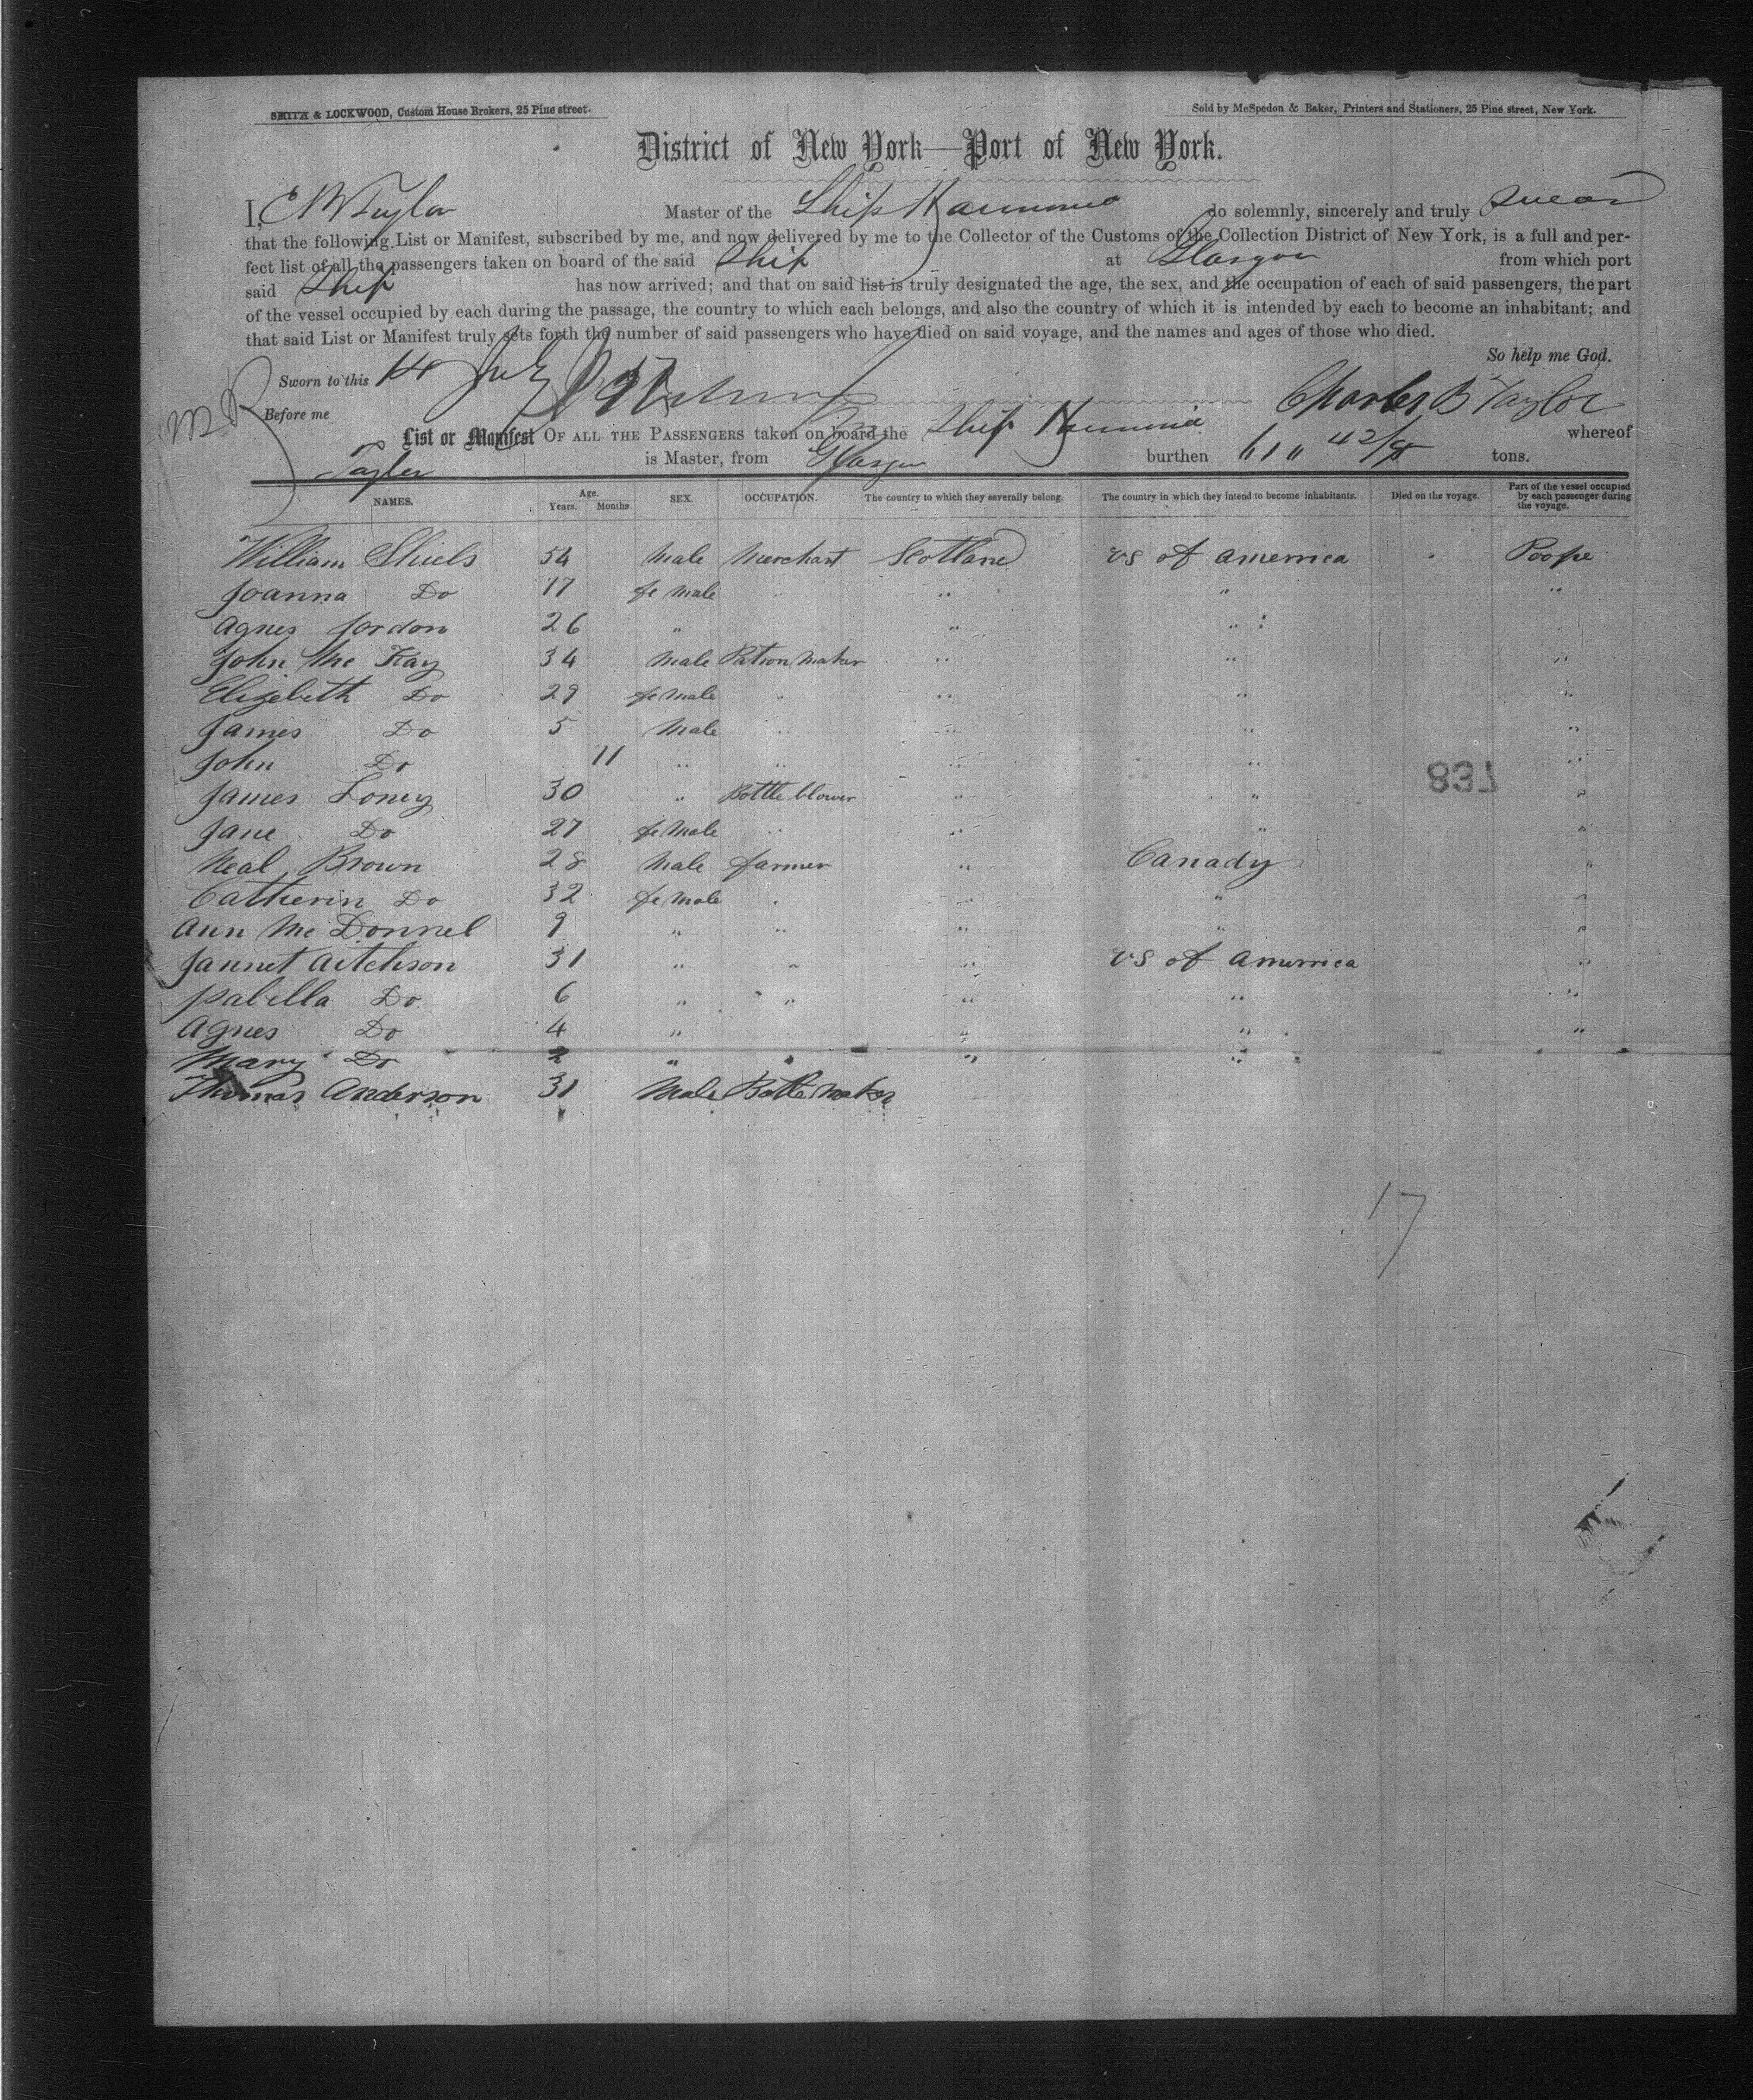 SMITH & LOCKWOOD, Custom House Brokers, 25 Pine street.
Sold by McSpedon & Baker, Printers and Stationers, 25 Pine street, New York.
District of New York—Port of New York.
I, C B Taylor Master of the Ship Harmonia do solemnly, sincerely and truly swear
that the following List or Manifest, subscribed by me, and now delivered by me to the Collector of the Customs of the Collection District of New York, is a full and per-
fect list of all the passengers taken on board of the said Ship at Glasgow from which port
said Ship has now arrived; and that on said list is truly designated the age, the sex, and the occupation of each of said passengers, the part
of the vessel occupied by each during the passage, the country to which each belongs, and also the country of which it is intended by each to become an inhabitant; and
that said List or Manifest truly sets forth the number of said passengers who have died on said voyage, and the names and ages of those who died.
So help me God.
Sworn to this 14 July
Before me Charles B Taylor
List or Manifest OF ALL THE PASSENGERS taken on board the Ship Harmonia whereof
Taylor is Master, from Glasgow burthen tons.
NAMES. Age. Years. Months. SEX. OCCUPATION. The country to which they severally belong. The country in which they intend to become inhabitants. Died on the voyage. Part of the vessel occupied by each passenger during the voyage.
William Shiels 54 Male Merchant Scotland US of amerrica Poope
Joanna Do 17 fe male " " " "
Agnes Jordon 26 " " "
John Mc Kay 34 Male Patron Maker " " "
Elizebeth Do 29 fe male " " " "
James Do 5 Male " " " "
John Do 11 " " " " "
James Loney 30 " Bottle blower " " "
Jane Do 27 fe Male " " " "
Neal Brown 28 Male farmer " Canady "
Catherin Do 32 fe Male " " " "
Ann Mc Donnel 9 " " " " "
Jannet Aitchson 31 " " " US of amerrica "
Isabella Do 6 " " " " "
Agnes Do 4 " " " "
Mary Do 2 " " " "
Thomas Anderson 31 Male Botle Maker
837
17